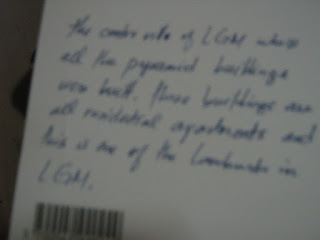 the centre site of LGM where
all the pyramid buildings
were built. These buildings are
all residential apartments and
this is one of the landmarks in
LGM.